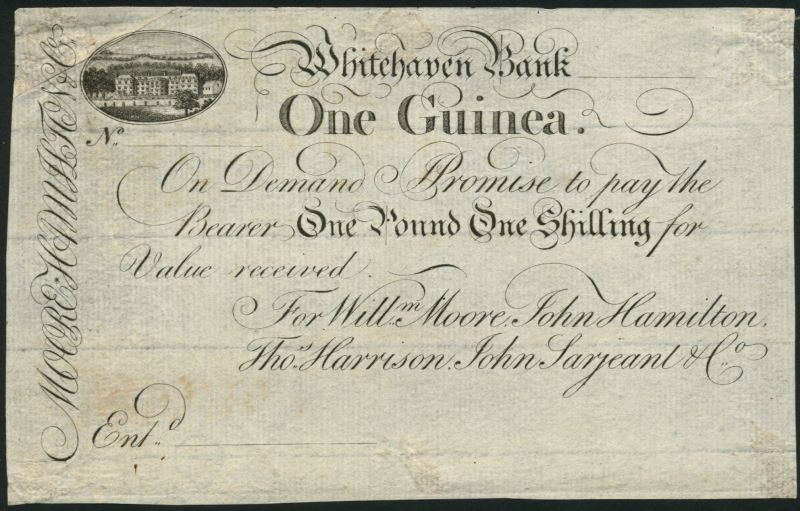 Whitehaven Bank
One Guinea.
No.
On Demand I Promise to pay the
Bearer One Pound One Shilling for
Value received.
For Willm. Moore, John Hamilton,
Thos. Harrison, John Sarjeant & Co.
Entd.
MOORE HAMILTON & Co.